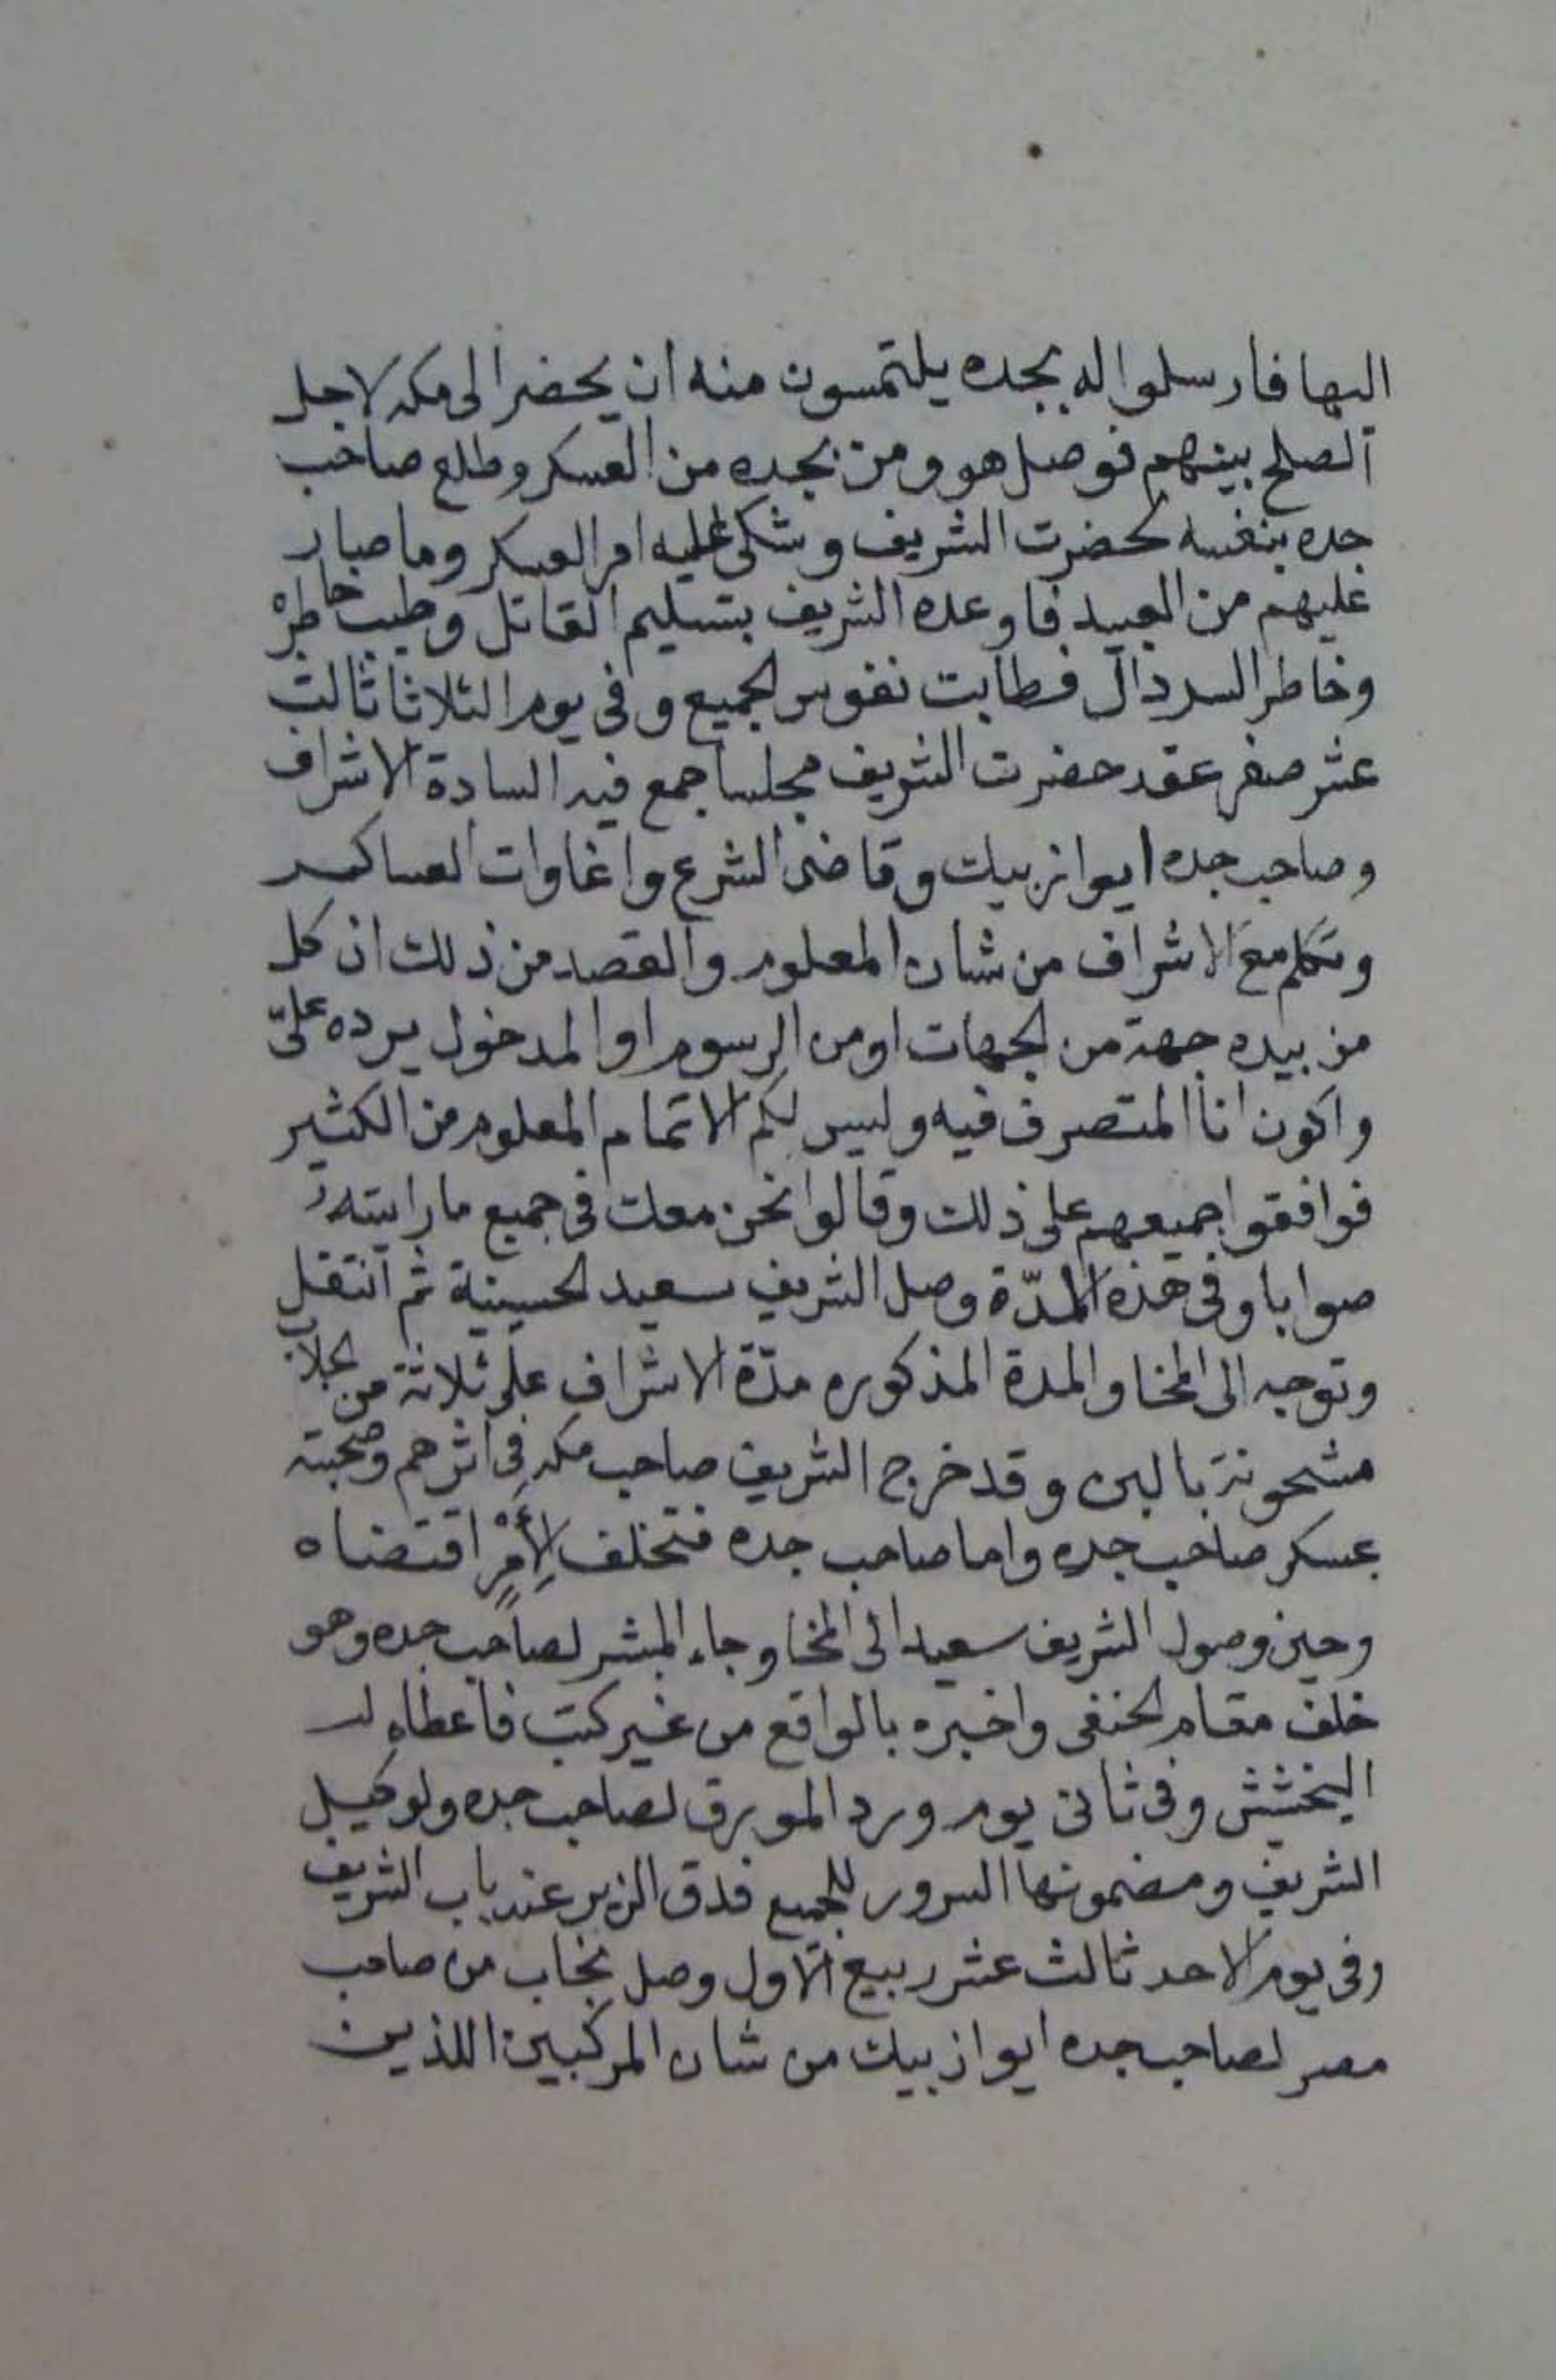 اليها فارسلوا له بجده يلتمسون منه ان يحضر الى مكه لاجل
الصلح بينهم فوصل هو ومن بجده من العسكر وطلع صاحب
جده بنفسه لحضرت الشريف وشكى اليه امر العسكر وما صار
عليهم من العبيد فاوعده الشريف بتسليم القاتل وطيب خاطره
وخاطر السردال فطابت نفوس الجميع وفي يوم الثلاثا ثالث
عشر صفر عقد حضرت الشريف مجلسا جمع فيه السادة الاشراف
وصاحب جده ايواز بيك وقاضى الشرع واغاوات العساكر
وتكلم مع الاشراف من شان المعلوم والقصد من ذلك ان كل
من بيده جهة من الجهات او من الرسوم او المدخول يرده علىّ
واكون انا المتصرف فيه وليس لكم الا تمام المعلوم من الكثير
فوافقوا جميعهم على ذلك وقالوا نحن معك في جميع ما رايته
صوابا وفي هذه المدّة وصل الشريف سعيد الحسينية ثم انتقل
وتوجه الى المخا والمدة المذكوره مدّة الاشراف على ثلاثة من الجلاب
مشحونة بالبن وقد خرج الشريف صاحب مكه في اثرهم وصحبته
عسكر صاحب جده واما صاحب جده فتخلف لِأَمْرٍ اقتضاه
وحين وصول الشريف سعيد الى المخا وجاء المبشر لصاحب جده وهو
خلف مقام الحنفى واخبره بالواقع من غير كتب فاعطاه له
البخشش وفي ثانى يوم ورد المورق لصاحب جده ولوكيل
الشريف ومضمونها السرور للجميع فدق الزير عند باب الشريف
وفي يوم الاحد ثالث عشر ربيع الاول وصل نجاب من صاحب
مصر لصاحب جده ايواز بيك من شان المركبين اللذين